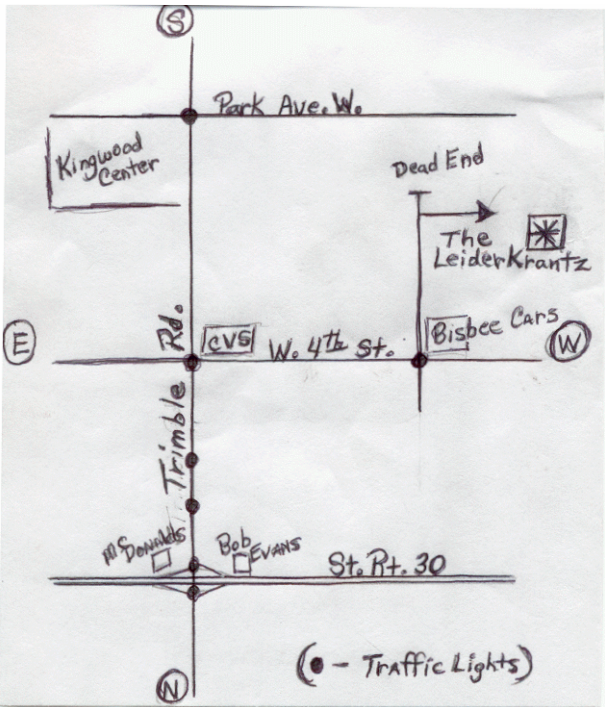 S
Park Ave. W.
Kingwood
Center
Dead End
The
LeiderKrantz
Trimble Rd.
CVS
W. 4th St.
Bisbee Cars
E
W
McDonnalds
Bob
Evans
St. Rt. 30
(● - Traffic Lights)
N